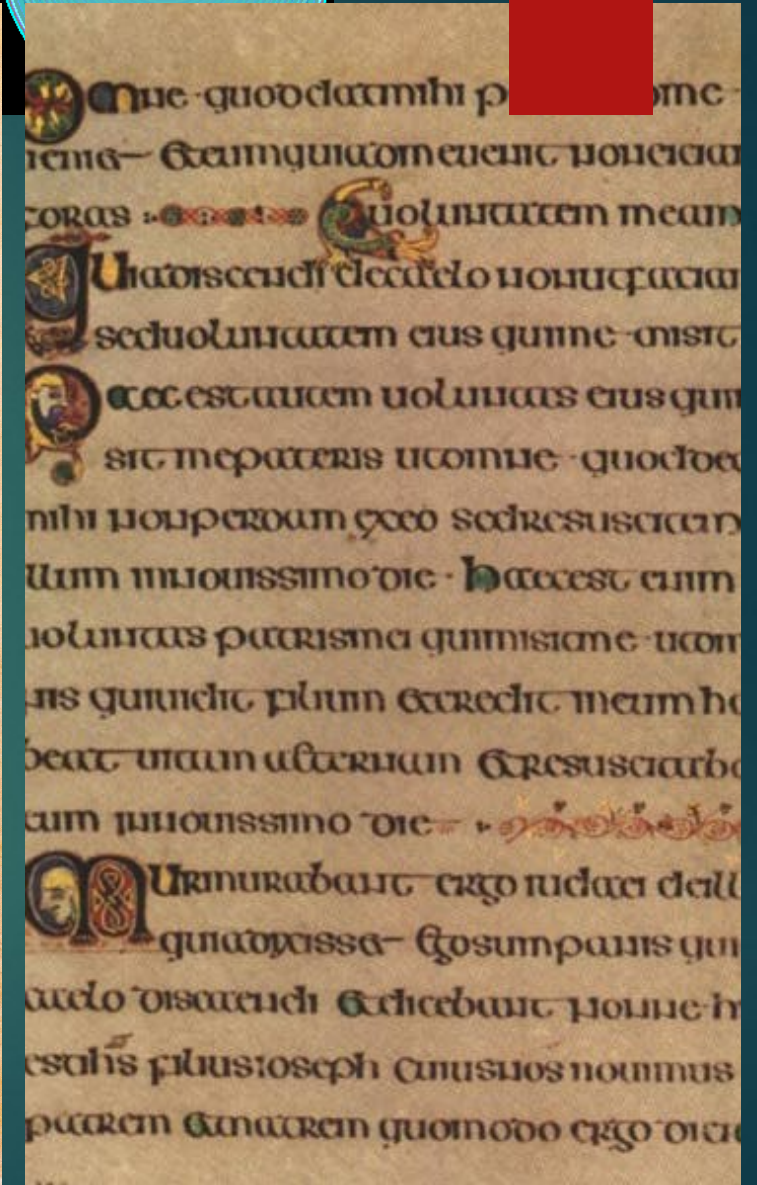 Omne · quod dat mihi p me ·
Et eum qui ad me uenit non eiciam
foras uoluntatem meam
Quia discendi de caelo non ut faciam
sed uoluntatem eius qui me misit
Haec est autem uoluntas eius qui mi
sit me pateris ut omne · quod ded
mihi non perdam exeo sed resuscitem
illum in nouissimo die · haec est enim
uoluntas patris mei qui misit me ut om
nis qui uidit filium et credit in eum ha
beat uitam aeternam et resuscitabo
eum in nouissimo die
Murmurabant ergo iudaei de ill
quia dixisset Ego sum panis qui
caelo discendi et dicebant nonne h
est ihs filius ioseph cuius nos nouimus
patrem et matrem quomodo ergo dici